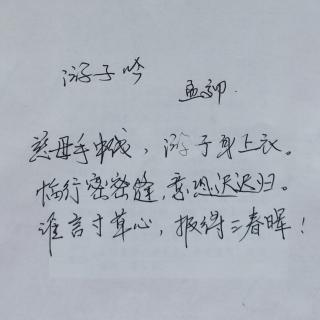 游子吟
孟郊.
慈母手中线，游子身上衣。
临行密密缝，意恐迟迟归。
谁言寸草心，报得三春晖！